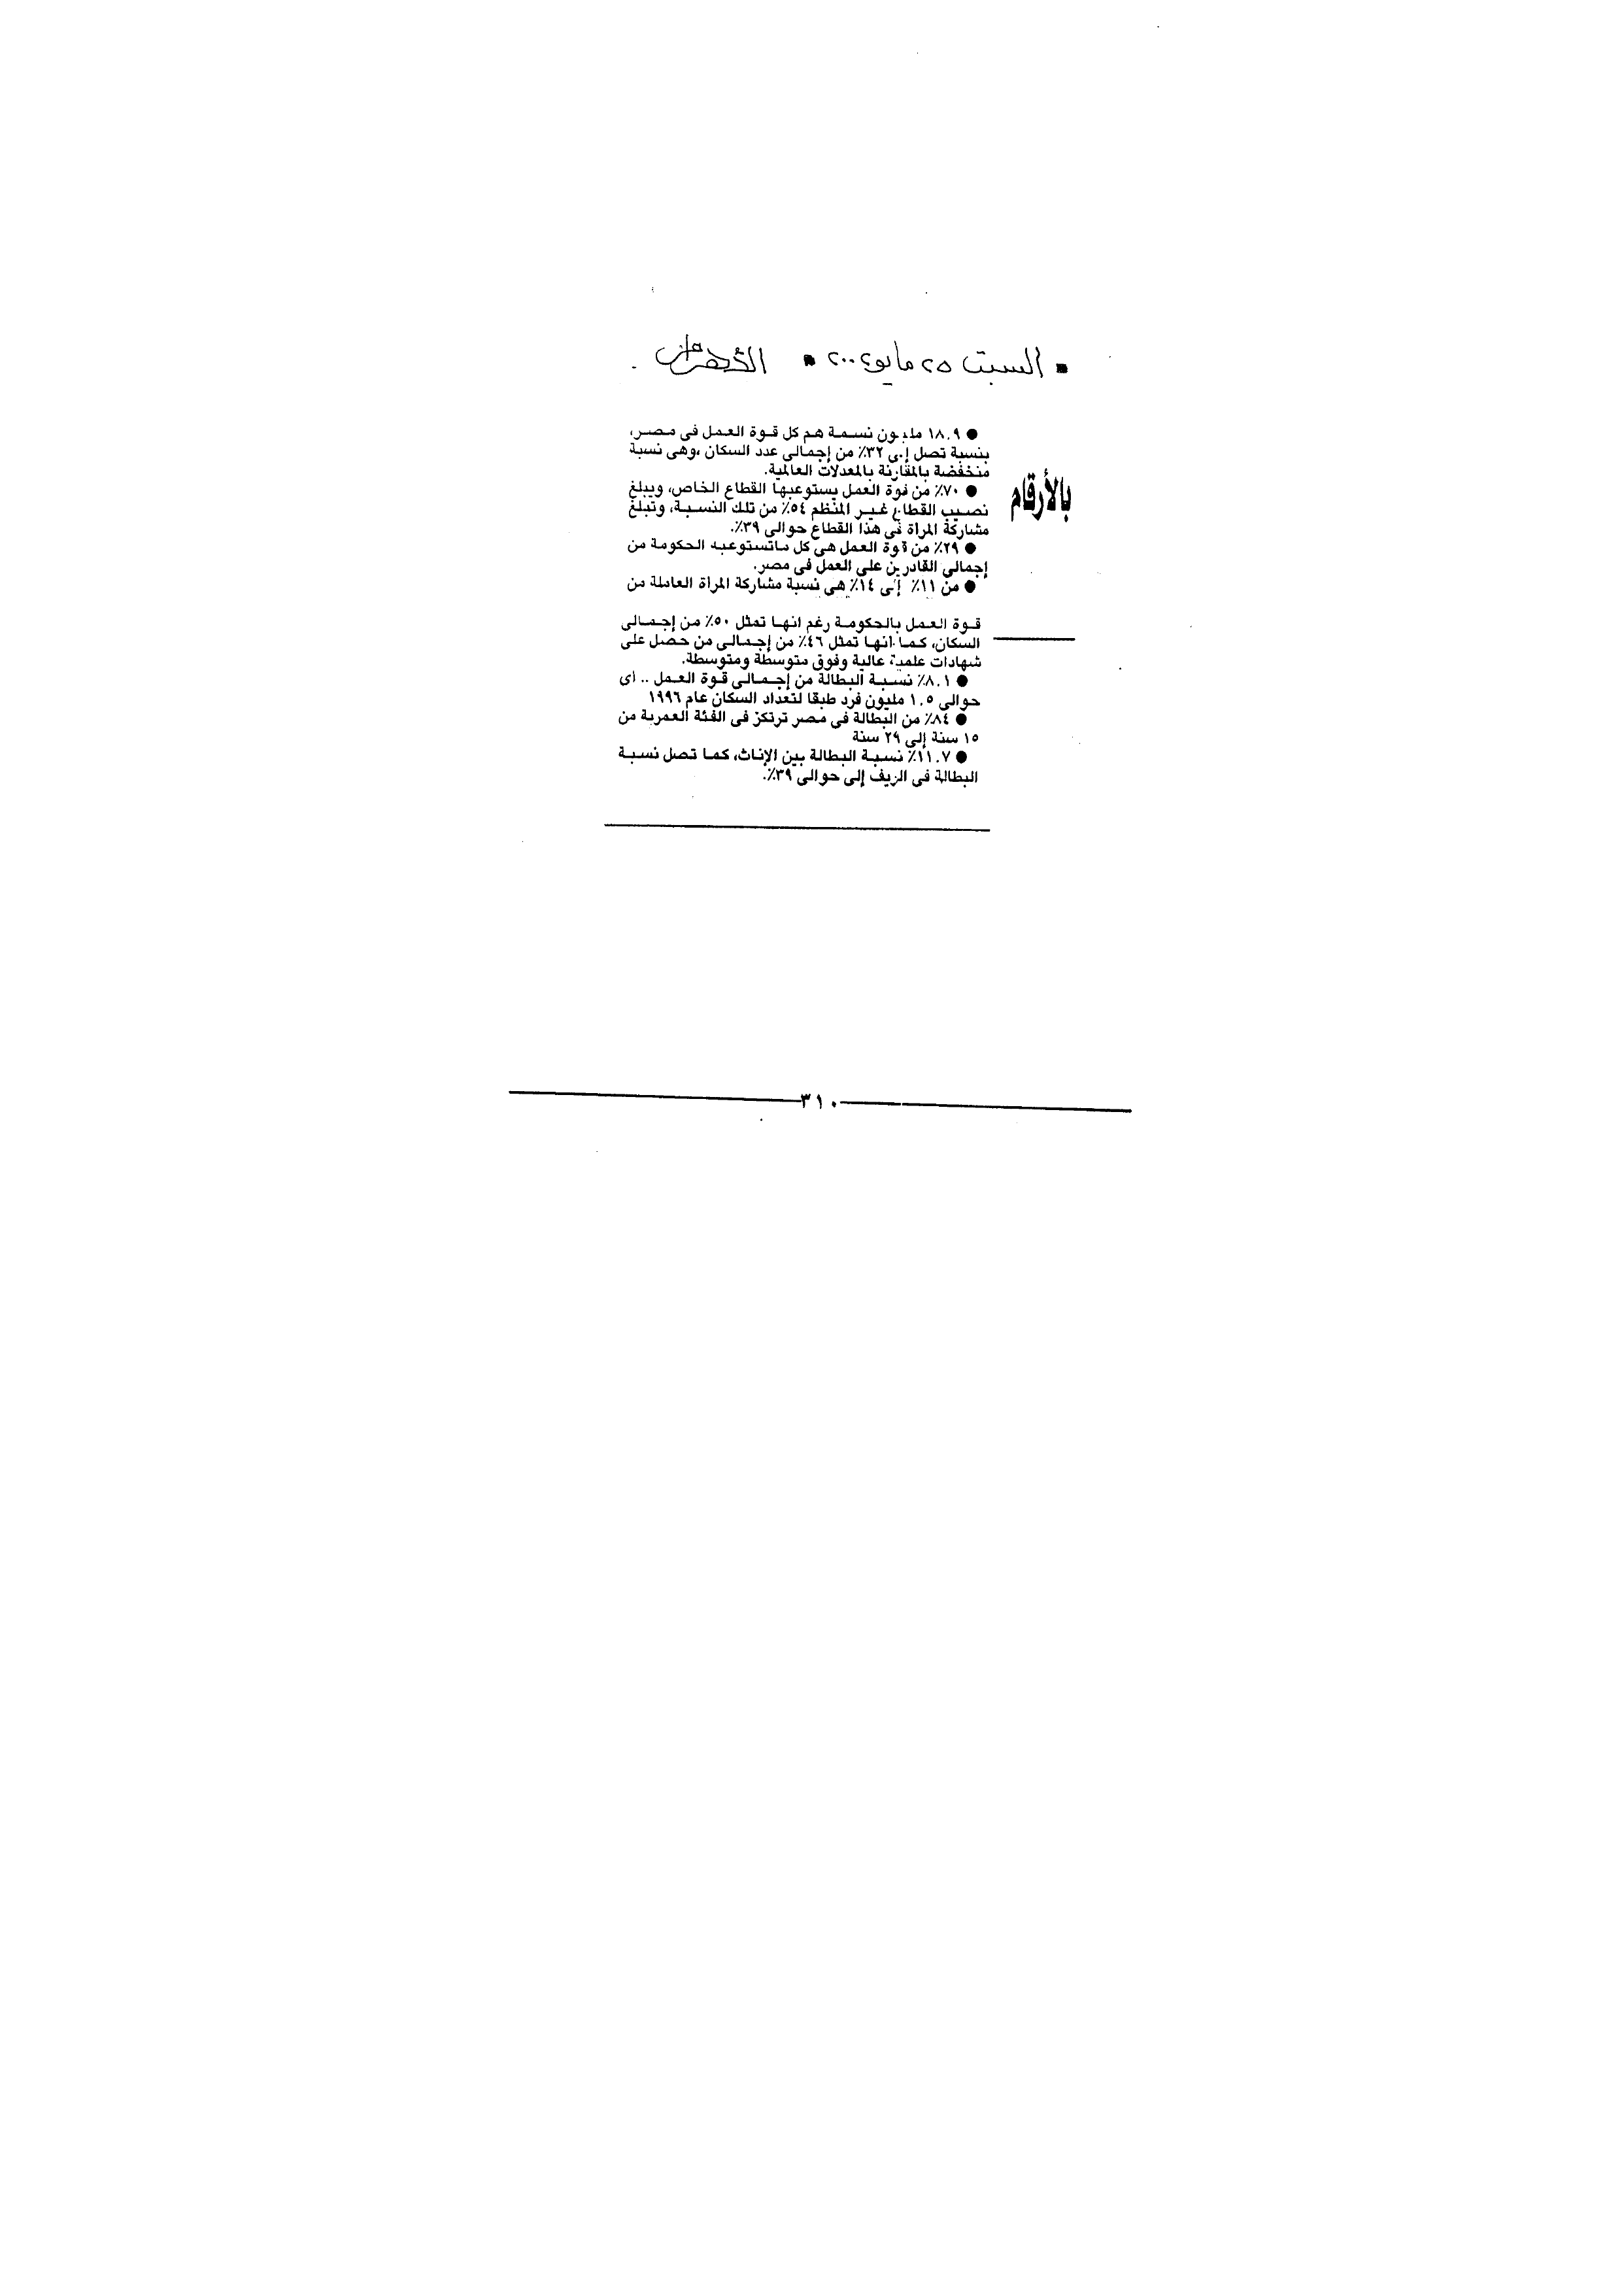 ▪ السبت ٢٥ مايو ٢٠٠٢ ▪ الأهرام
بالأرقام
● ١٨.٩ مليون نسمة هم كل قوة العمل فى مصر،
بنسبة تصل إلى ٣٢٪ من إجمالى عدد السكان ،وهى نسبة
منخفضة بالمقارنة بالمعدلات العالمية.
● ٧٠٪ من قوة العمل يستوعبها القطاع الخاص، ويبلغ
نصيب القطاع غير المنظم ٥٤٪ من تلك النسبة، وتبلغ
مشاركة المراة فى هذا القطاع حوالى ٣٩٪.
● ٢٩٪ من قوة العمل هى كل ماتستوعبه الحكومة من
إجمالى القادرين على العمل فى مصر.
● من ١١٪ إلى ١٤٪ هى نسبة مشاركة المراة العاملة من
قوة العمل بالحكومة رغم انها تمثل ٥٠٪ من إجمالى
السكان، كما انها تمثل ٤٦٪ من إجمالى من حصل على
شهادات علمية عالية وفوق متوسطة ومتوسطة.
● ٨.١٪ نسبة البطالة من إجمالى قوة العمل .. اى
حوالى ١.٥ مليون فرد طبقا لتعداد السكان عام ١٩٩٦
● ٨٤٪ من البطالة فى مصر ترتكز فى الفئة العمرية من
١٥ سنة إلى ٢٩ سنة
● ١١.٧٪ نسبة البطالة بين الإناث، كما تصل نسبة
البطالة فى الريف إلى حوالى ٣٩٪.
٣١٠